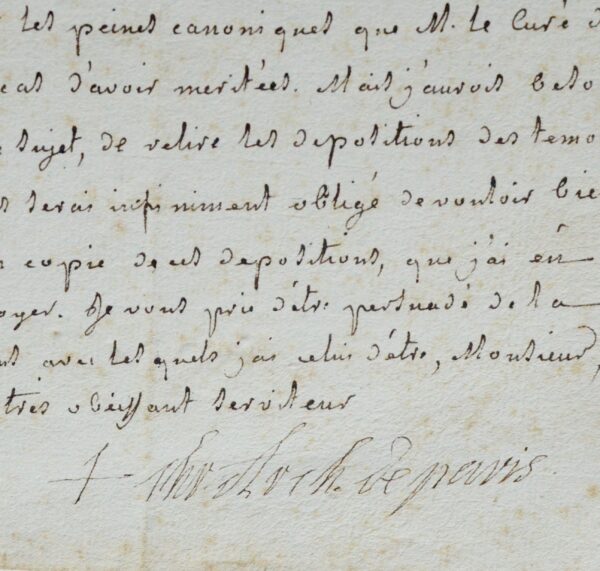 les peines canoniques que M. le Curé d
cas d'avoir meritées. Mais j'aurois beso
sujet, de relire les depositions des temo
s serais infiniment obligé de vouloir bie
copie de ces depositions, que j'ai en
oyer. Je vous prie d'être persuadé de la
avec lesquels j'ai celui d'être, Monsieur,
tres obeissant serviteur
+ arch. de paris